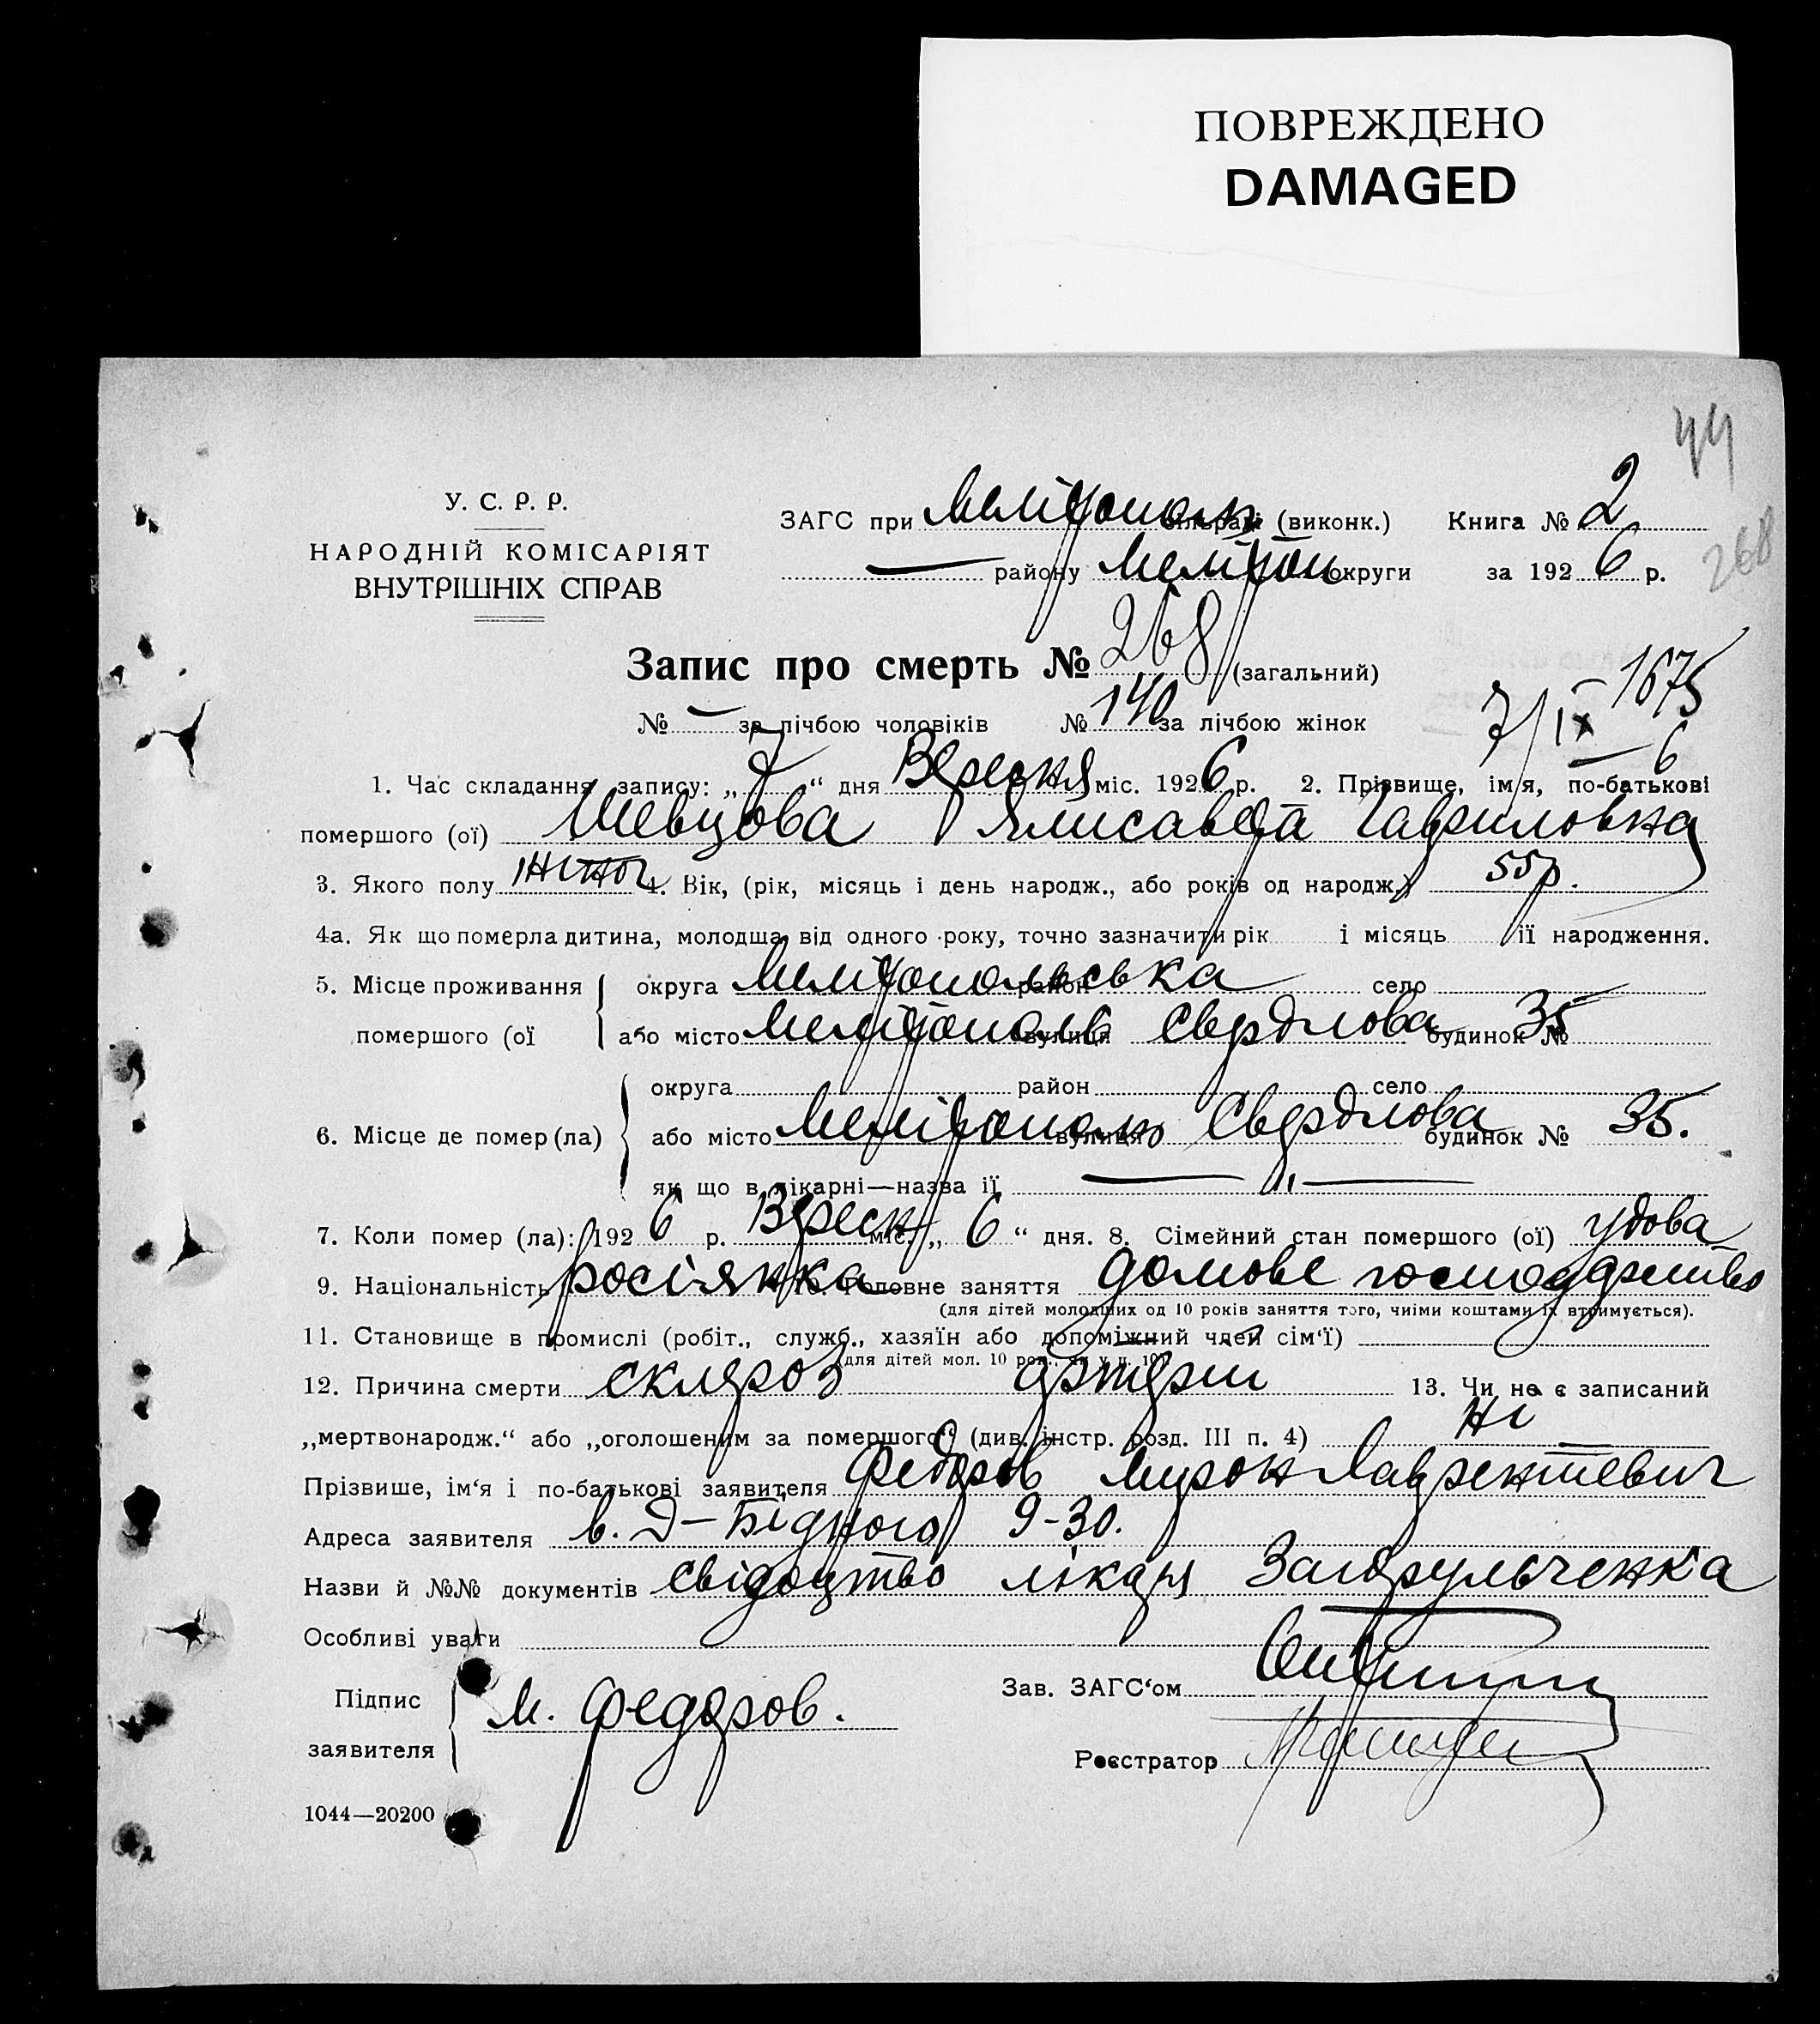 ПОВРЕЖДЕНО
DAMAGED
44
У. С. Р. Р.
НАРОДНІЙ КОМІСАРІЯТ
ВНУТРІШНІХ СПРАВ
ЗАГС при Мелітополь сільраді (виконк.) Книга № 2
— району Мелітоп округи за 1926 р.
268
Запис про смерть № 268 (загальний)
№ — за лічбою чоловіків № 140 за лічбою жінок
7/IX 6 1675
1. Час складання запису: „7“ дня Вересня міс. 1926 р. 2. Прізвище, ім'я, по-батькові
помершого (ої) Шевцова Ялисавета Гавриловна
3. Якого полу жіноч 4. Вік, (рік, місяць і день народж., або років од народж.) 55 р.
4а. Як що померла дитина, молодша від одного року, точно зазначити рік і місяць її народження.
5. Місце проживання помершого (ої округа Мелітопольська район село
або місто Мелітополь вулиця Свердлова будинок № 35
6. Місце де помер (ла) округа район село
або місто Мелітополь вулиця Свердлова будинок № 35.
як що в лікарні—назва її — „ —
7. Коли помер (ла): 1926 р. Вересн міс. „6“ дня. 8. Сімейний стан помершого (ої) удова
9. Національність росіянка 10. Головне заняття домове господарство
(для дітей молодших од 10 років заняття того, чиїми коштами їх втримується).
11. Становище в промислі (робіт., служб., хазяїн або допоміжний член сім'ї)
(для дітей мол. 10 рок., як у п. 10)
12. Причина смерти склероз артерій 13. Чи не є записаний
„мертвонародж.“ або „оголошеним за помершого“ (див. інстр. розд. III п. 4) Ні
Прізвише, ім'я і по-батькові заявителя Федоров Мирон Лаврентевич
Адреса заявителя в. Д-Бідного 9-30.
Назви й №№ документів свідоцтво лікаря Загорульченка
Особливі уваги
Підпис заявителя М. Федоров.
Зав. ЗАГС'ом
Реєстратор
1044—20200